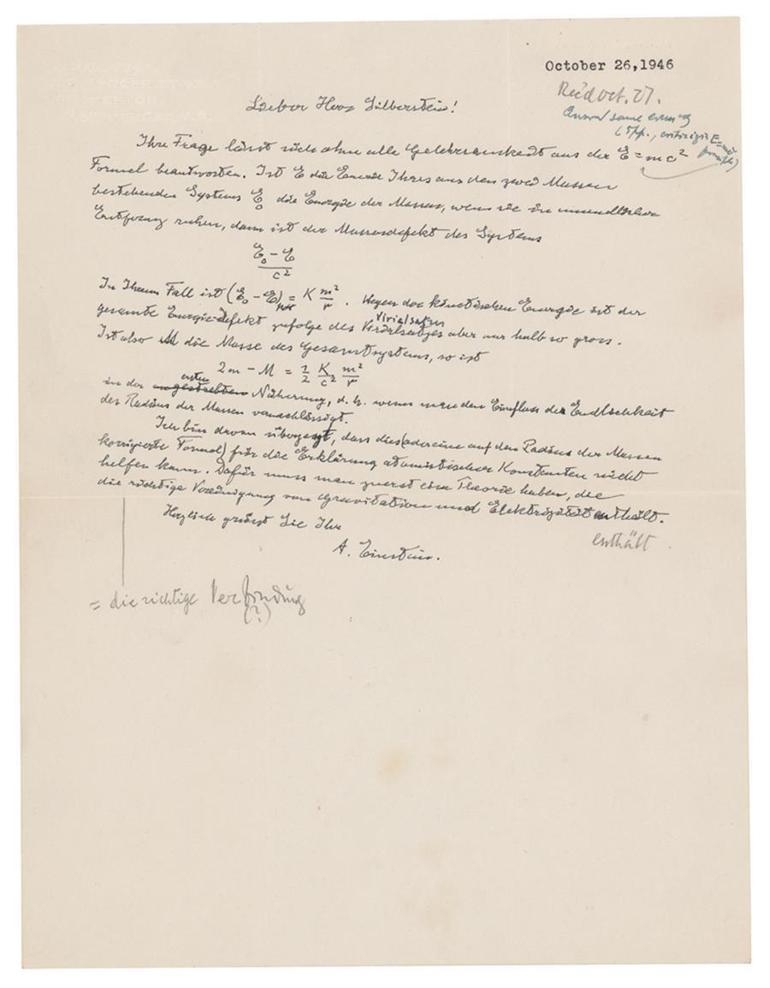 October 26, 1946
Rec'd Oct. 27.
Answ'd same
Lieber Herr Silberstein!
Ihre Frage lässt sich ohne alle Gelehrsamkeit aus der E = mc²
Formel beantworten. Ist E die Energie Ihres aus den zwei Massen
bestehenden Systems E₀ die Energie der Massen, wenn sie in unendlicher
Entfernung ruhen, dann ist der Massendefekt des Systems
E₀ – E / c²
In Ihrem Fall ist (E₀ – E) = K m²/r. Wegen der kinetischen Energie ist der
Virialsatzes
gesamte Energiedefekt zufolge des Virialsatzes aber nur halb so gross.
Ist also M die Masse des Gesamtsystems, so ist
2m – M = 1/2 K/c² m²/r
ersten
in der angestrebten Näherung, d. h. wenn man den Einfluss der Endlichkeit
des Radius der Massen vernachlässigt.
Ich bin davon überzeugt, dass dies (oder eine auf den Radius der Massen
korrigierte Formel) für die Erklärung atomistischer Konstanten nicht
helfen kann. Dafür muss man zuerst eine Theorie haben, die
die richtige Vereinigung von Gravitation und Elektrizität enthält.
enthält
Herzlich grüsst Sie Ihr
A. Einstein.
= die richtige Verbindung
(?)